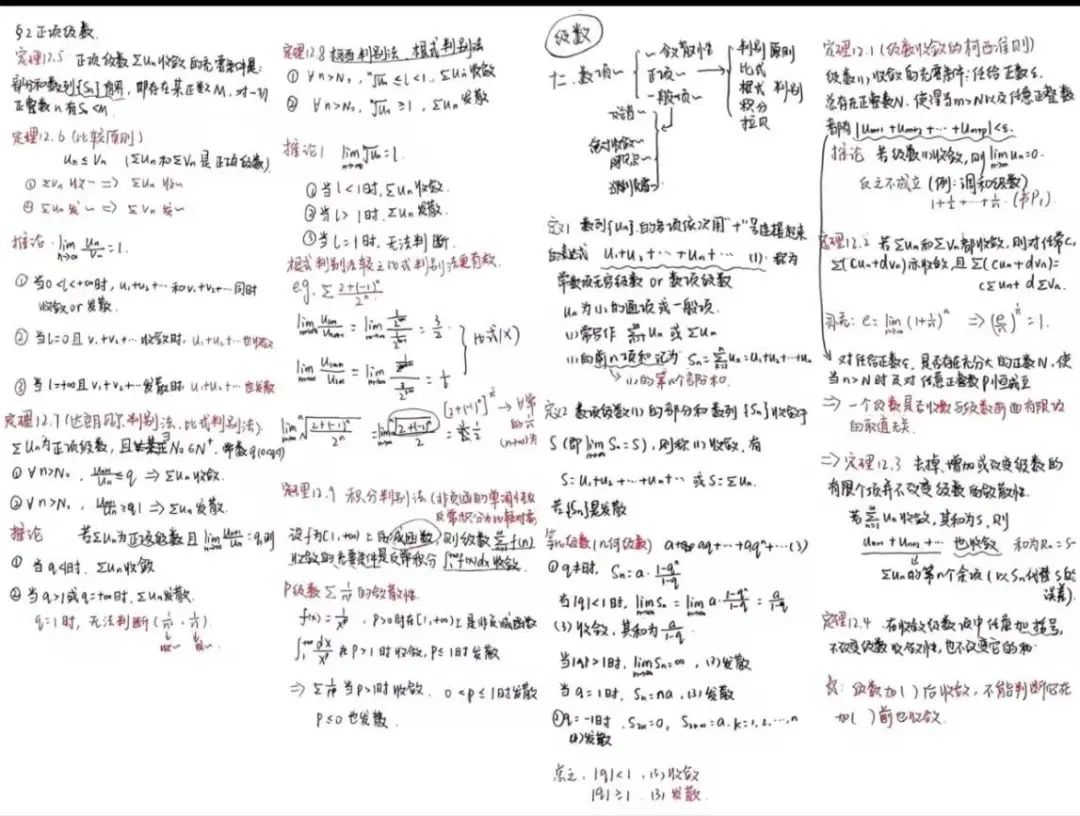 §2 正项级数.
定理12.5 正项级数Σun收敛的充要条件是:
部分和数列{Sn}有界, 即存在某正数M, 对一切
正整数n有Sn<M.
定理12.6 (比较原则)
un ≤ vn (Σun和Σvn是正项级数)
① Σvn 收~ => Σun 收~
② Σun 发~ => Σvn 发~
推论. lim n→∞ un/vn = l.
① 当0<l<+∞时, u1+u2+… 和v1+v2+…同时
收敛or发散.
② 当l=0且v1+v2+…收敛时, u1+u2+…也收敛
③ 当l=+∞且v1+v2+…发散时, u1+u2+…也发散
定理12.7 (达朗贝尔判别法、比式判别法):
Σun为正项级数, 且 N0∈N+, 常数q(0<q<1)
① ∀n>N0, un+1/un ≤ q => Σun收敛.
② ∀n>N0, un+1/un ≥ 1 => Σun发散.
推论 若Σun为正项级数且 lim n→∞ un+1/un = q, 则
① 当q<1时, Σun收敛
② 当q>1或q=+∞时, Σun发散.
q=1时, 无法判断 (1/n², 1/n)
收~ 发~
定理12.8 柯西判别法、根式判别法
① ∀n>N0, ⁿ√un ≤ l < 1, Σun收敛
② ∀n>N0, ⁿ√un ≥ 1, Σun发散
推论1 lim n→∞ ⁿ√un = l.
① 当l<1时, Σun收敛.
② 当l>1时, Σun发散.
③ 当l=1时, 无法判断.
根式判别法较之比式判别法更有效.
e.g. Σ (2+(-1)ⁿ)/2ⁿ
= 3/2
= 1/6
比式(X)
lim n→∞ ⁿ√((2+(-1)ⁿ)/2ⁿ) = lim n→∞ ⁿ√(2+(-1)ⁿ)/2 = 1/2
[2+(-1)ⁿ]
定理12.9 积分判别法 (非负函的单调性和
反常积分为比较对象
设f为[1,+∞)上的减函数, 则级数Σf(n)
收敛的充要条件是反常积分∫₁^{+∞} f(x)dx收敛.
P级数Σ 1/n^p 的敛散性.
f(x)=1/x^p, p>0时在[1,+∞)上是非负减函数
∫₁^{+∞} dx/x^p 在p>1时收敛, p≤1时发散
=> Σ 1/n^p 当p>1时收敛, 0<p≤1时发散
p≤0也发散.
级数
十二. 数项~
一、敛散性
正项~
一般项~
判别原则
比式
根式
积分
拉贝
判别
绝对收敛~
定义1 数列{un}的各项依次用"+"号连接起来
的表达式 u1+u2+…+un+… (1) 称为
常数项无穷级数or数项级数
un为(1)的通项或一般项.
(1)常写作 Σ_{n=1}^∞ un 或Σun
(1)的前n项和记为 Sn=Σun=u1+u2+…+un
↳ (1)的第n个部分和.
定义2 数项级数(1)的部分和数列{Sn}收敛于
S(即lim n→∞ Sn=S), 则称(1)收敛, 有
S=u1+u2+…+un+… 或S=Σun.
若{Sn}是发散
等比级数(几何级数) a+aq+aq²+…+aqⁿ+…(3)
① q≠1时, Sn=a·(1-qⁿ)/(1-q)
当|q|<1时, lim n→∞ Sn = lim n→∞ a·(1-qⁿ)/(1-q) = a/(1-q)
(3)收敛, 其和为a/(1-q).
当|q|>1时, lim n→∞ Sn=∞, (3)发散
当q=1时, Sn=na, (3)发散
② q=-1时, S2k=0, S2k+1=a. k=1,2,…,n
(3)发散
总之, |q|<1, (3)收敛
|q|≥1, (3)发散.
定理12.1 (级数收敛的柯西准则)
级数(1)收敛的充要条件: 任给正数ε,
总存在正整数N, 使得当m>N以及任意正整数
都有 |um+1+um+2+…+um+p|<ε.
推论 若级数(1)收敛, 则lim n→∞ un=0.
反之不成立 (例: 调和级数)
1+1/2+…+1/n. (书P3)
定理12.2 若Σun和Σvn都收敛, 则对任常c,
Σ(cun+dvn)亦收敛, 且Σ(cun+dvn)=
cΣun+dΣvn.
补充: e=lim n→∞ (1+1/n)ⁿ
对任给正数ε, 是否存在充分大的正数N, 使
当n>N时及对任意正整数p恒成立
=> 一个级数是否收敛与级数前面有限项
的取值无关.
=> 定理12.3 去掉、增加或改变级数的
有限个项并不改变级数的敛散性.
若Σun收敛, 其和为S, 则
un+1+un+2+… 也收敛 和为Rn=S-
Σun的第n个余项 (以Sn代替S的
误差)
定理12.4 在收敛级数项中任意加括号,
不改变级数收敛性, 也不改变它的和.
级数加( )后收敛, 不能判断它在
加( )前也收敛.